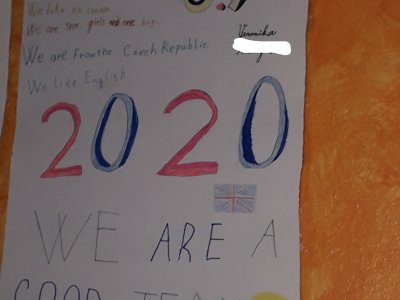 We like ice cream
We are three girls and one boy.
Veronika
We are From the Czech Republic.
We like English.
2020
WE ARE A
GOOD TEAM